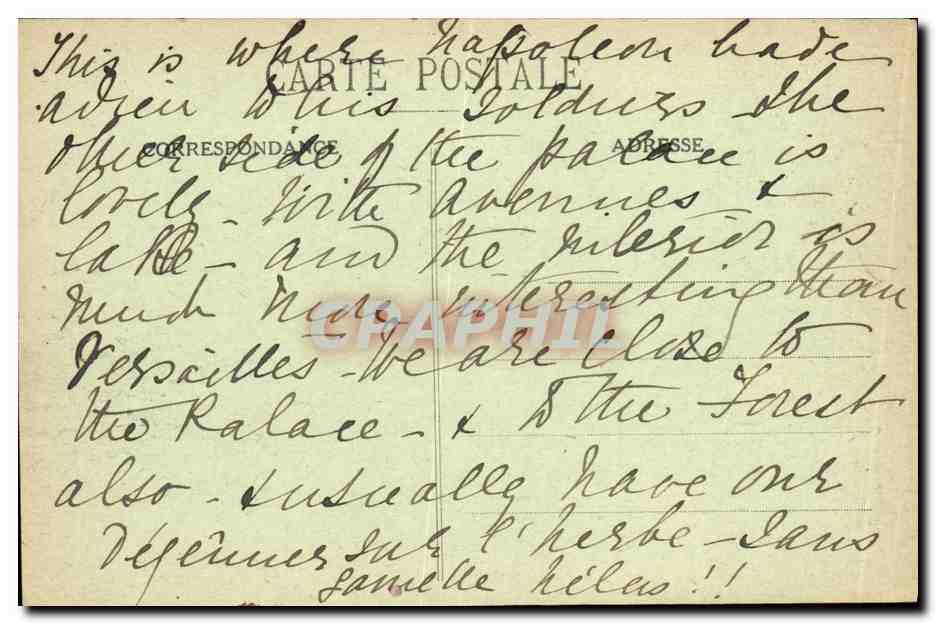 This is where Napoleon bade
CARTE POSTALE
adieu to his soldiers The
CORRESPONDANCE
ADRESSE
other side of the palace is
lovely - with avenues &
lake - and the interior is
much more interesting than
CPAPHIL
Versailles - We are close to
the Palace - & to the Forest
also - & usually have our
Déjêuner sur l'herbe - Sans
gamelle hélas!!